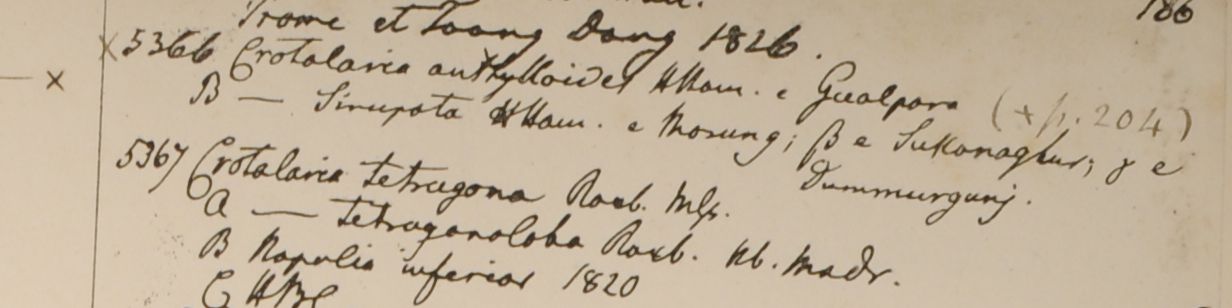 186
Prome et Toong Dong 1826.
x 5366 Crotalaria anthylloides HHam. e Gualpara (+ p. 204)
x
B — Sirupata HHam. e Morung; β e Sukanaghur; γ e
Dummurgunj.
5367 Crotalaria tetragona Roxb. Mss.
A — tetragonoloba Roxb. Hb. Madr.
B Napalia inferior 1820
C HBC